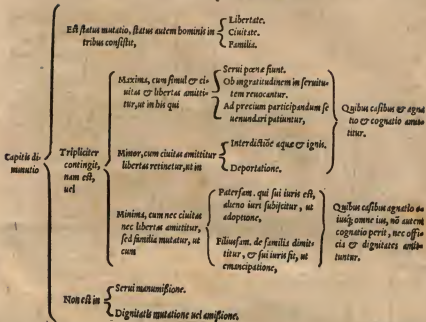 Est status mutatio, status autem hominis in
tribus consistit,
Libertate.
Ciuitate.
Familia.
Capitis di-
minutio
Tripliciter
contingit,
nam est,
uel
Maxima, cum simul & ci-
uitas & libertas amitti-
tur, ut in his qui
Serui pœnæ fiunt.
Ob ingratitudinem in seruitu-
tem reuocantur.
Ad precium participandum se
uenundari patiuntur,
Quibus casibus & agna
tio & cognatio amit-
titur.
Minor, cum ciuitas amittitur
libertas retinetur, ut in
Interdictiōe aquæ & ignis.
Deportatione.
Minima, cum nec ciuitas
nec libertas amittitur,
sed familia mutatur, ut
cum
Paterfam. qui sui iuris est,
alieno iuri subijcitur, ut
adoptione,
Filiusfam. de familia dimit-
titur, & sui iuris fit, ut
emancipatione,
Quibus casibus agnatio
eiusq; omne ius, nō autem
cognatio perit, nec offi-
cia & dignitates amit-
tuntur.
Non est in
Serui manumißione.
Dignitatis mutatione uel amißione.